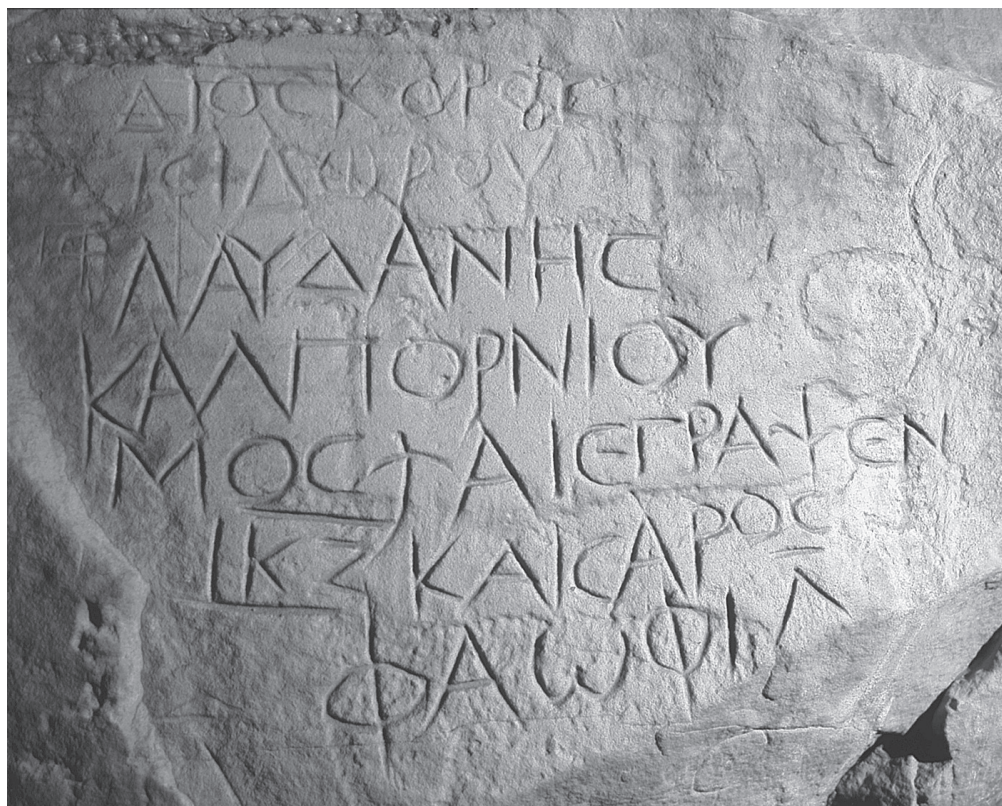 ΔΙΟCΚΟΡΟC
ΙCΙΔωΡΟΥ
ΛΑΥΔΑΝΗC
ΚΑΛΠΟΡΝΙΟΥ
ΜΟCΨΑΙΕΓΡΑΨΕΝ
LΚΖ ΚΑΙCΑΡΟC
ΦΑωΦΙ Λ̅